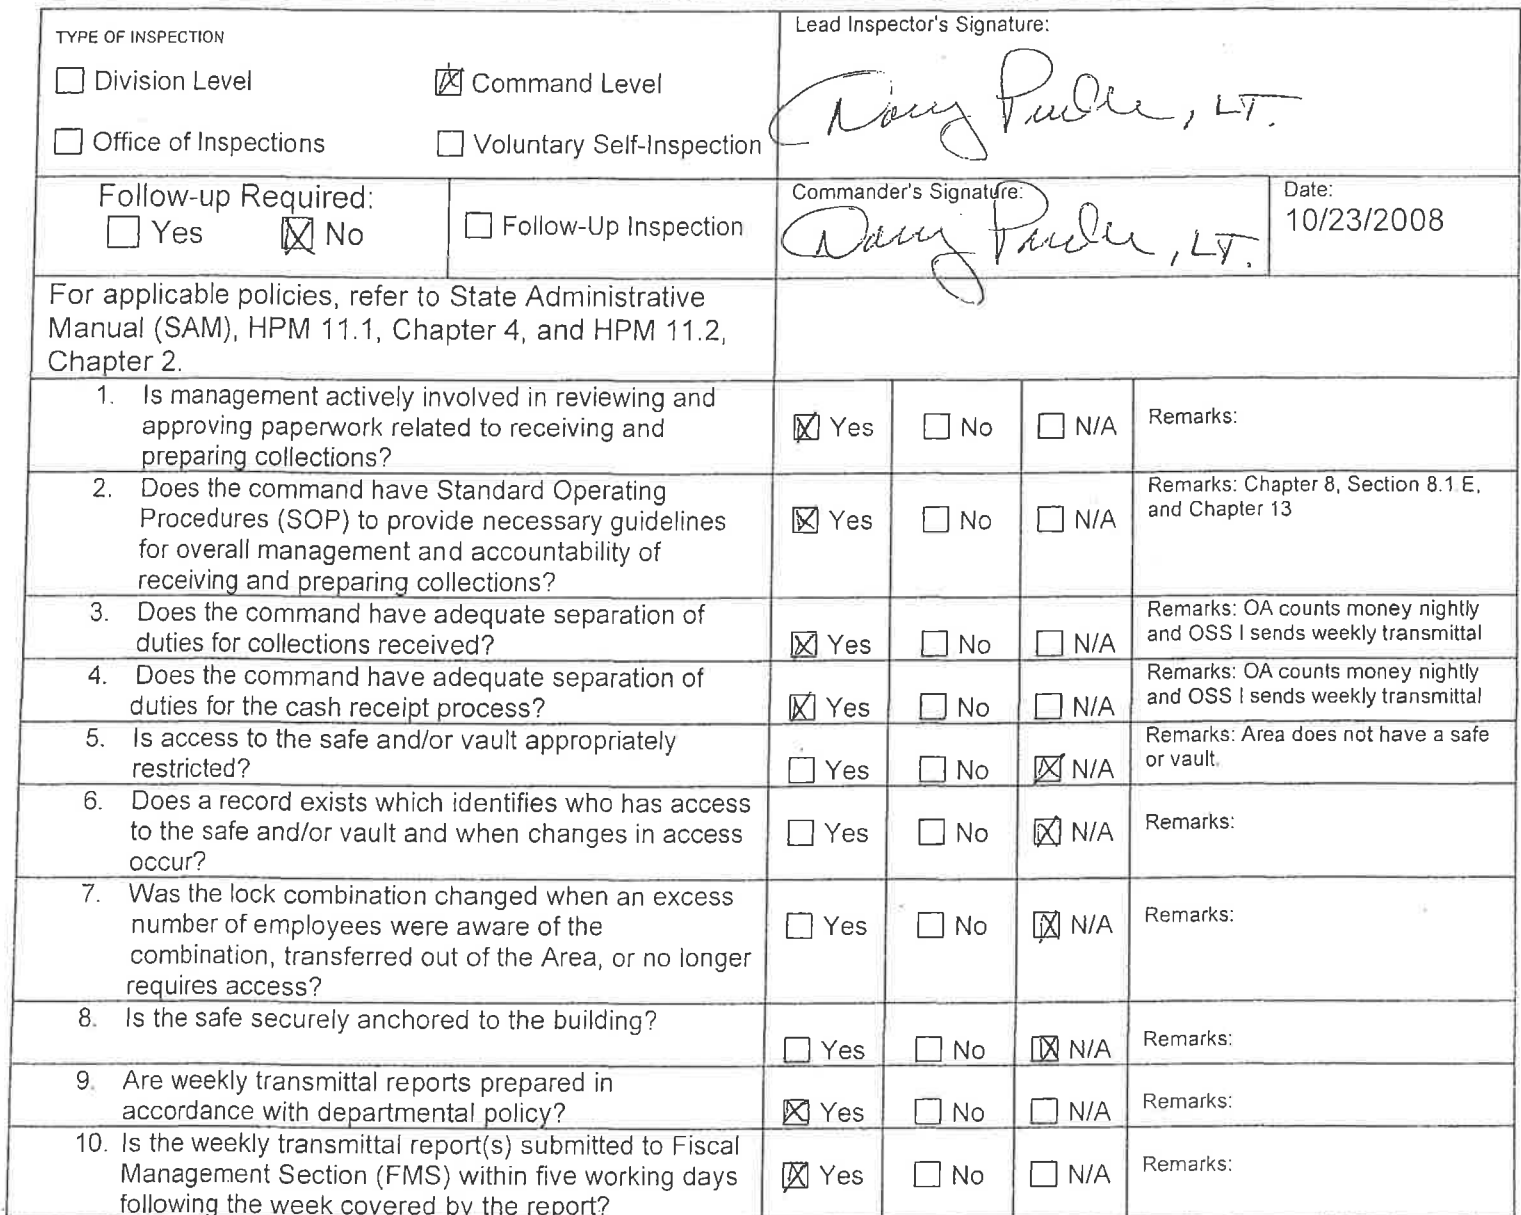 TYPE OF INSPECTION
Division Level
Command Level
Office of Inspections
Voluntary Self-Inspection
Lead Inspector's Signature:
, LT.
Follow-up Required:
Yes
No
Follow-Up Inspection
Commander's Signature:
, LT.
Date:
10/23/2008
For applicable policies, refer to State Administrative
Manual (SAM), HPM 11.1, Chapter 4, and HPM 11.2,
Chapter 2.
1. Is management actively involved in reviewing and
approving paperwork related to receiving and
preparing collections?
Yes
No
N/A
Remarks:
2. Does the command have Standard Operating
Procedures (SOP) to provide necessary guidelines
for overall management and accountability of
receiving and preparing collections?
Yes
No
N/A
Remarks: Chapter 8, Section 8.1 E,
and Chapter 13
3. Does the command have adequate separation of
duties for collections received?
Yes
No
N/A
Remarks: OA counts money nightly
and OSS I sends weekly transmittal
4. Does the command have adequate separation of
duties for the cash receipt process?
Yes
No
N/A
Remarks: OA counts money nightly
and OSS I sends weekly transmittal
5. Is access to the safe and/or vault appropriately
restricted?
Yes
No
N/A
Remarks: Area does not have a safe
or vault.
6. Does a record exists which identifies who has access
to the safe and/or vault and when changes in access
occur?
Yes
No
N/A
Remarks:
7. Was the lock combination changed when an excess
number of employees were aware of the
combination, transferred out of the Area, or no longer
requires access?
Yes
No
N/A
Remarks:
8. Is the safe securely anchored to the building?
Yes
No
N/A
Remarks:
9. Are weekly transmittal reports prepared in
accordance with departmental policy?
Yes
No
N/A
Remarks:
10. Is the weekly transmittal report(s) submitted to Fiscal
Management Section (FMS) within five working days
following the week covered by the report?
Yes
No
N/A
Remarks: